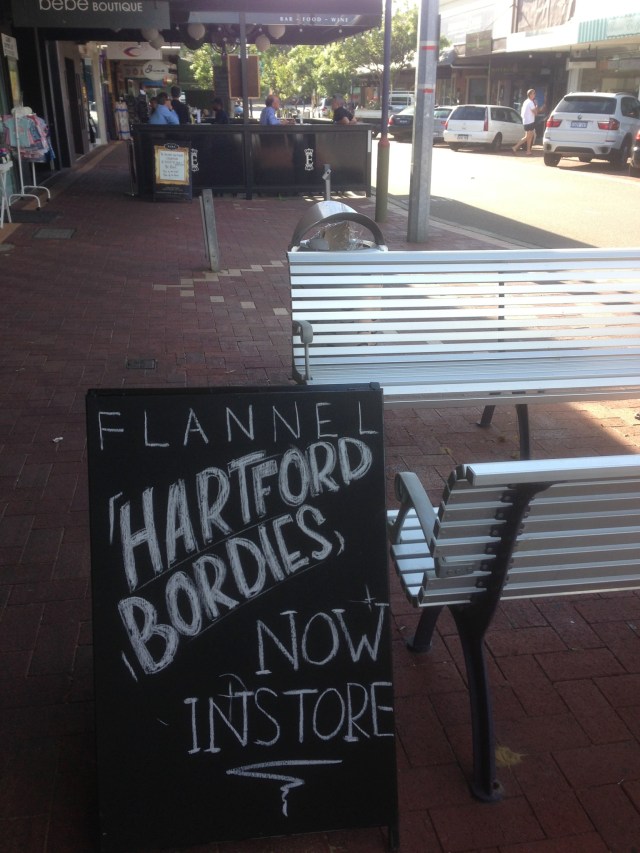 bébé BOUTIQUE
BAR - FOOD - WINE
FLANNEL
HARTFORD
BORDIES
NOW
INSTORE